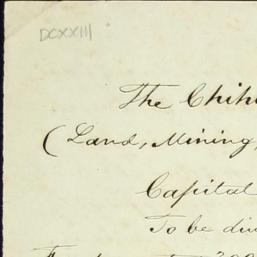 DCXXIII
The Chih
(Land, Mining,
Capital
To be div